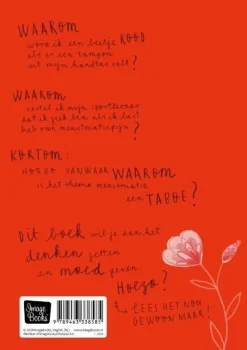 WAAROM
word ik een beetje ROOD
als er een tampon
uit mijn handtas valt?
WAAROM
vertel ik mijn sportleraar
dat ik griep heb als ik last
heb van menstruatiepijn?
KORTOM:
HOEZO VANWAAR WAAROM
is het thema menstruatie
een TABOE?
Dit boek wil je aan het
denken zetten
en moed geven.
Hoezo?
LEES HET NOU
GEWOON MAAR!
Image
Books
9789463338585